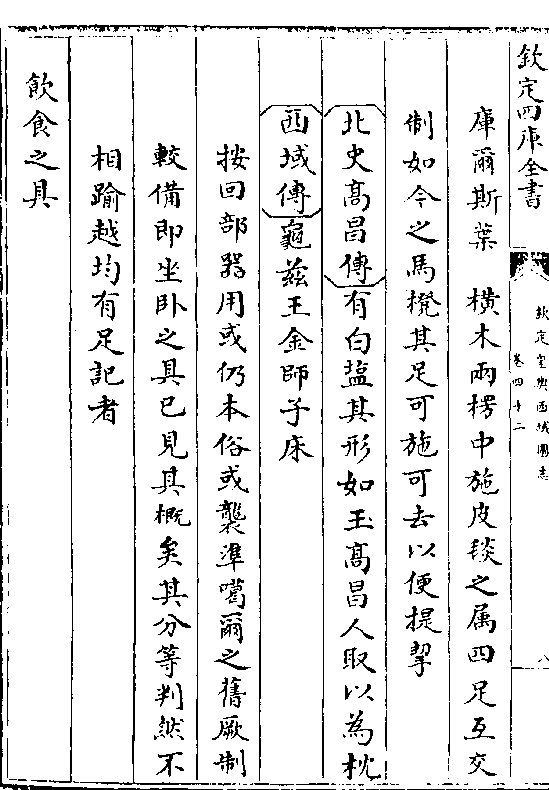 欽定四庫全書
欽定皇輿西域圖志
卷四十二
八
庫爾斯葉　橫木兩楞中施皮毯之属四足互交
制如今之馬櫈其足可施可去以便提挈
北史髙昌傳有白盐其形如玉髙昌人取以為枕
西域傳龜兹王金師子床
按回部器用或仍本俗或襲準噶爾之舊厥制
較備即坐卧之具已見其概矣其分等判然不
相踰越均有足記者
飲食之具